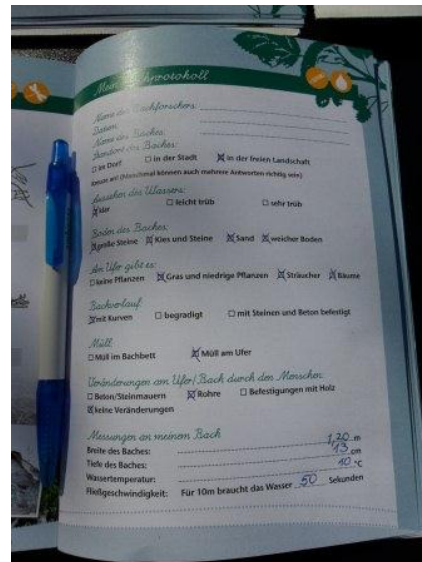 Messprotokoll
Name des Bachforschers:
Datum:
Name des Baches:
Standort des Baches:
☐ im Dorf ☐ in der Stadt ☒ in der freien Landschaft
(Manchmal können auch mehrere Antworten richtig sein)
Aussehen des Wassers:
☒ klar ☐ leicht trüb ☐ sehr trüb
Boden des Baches:
☒ große Steine ☒ Kies und Steine ☒ Sand ☒ weicher Boden
Am Ufer gibt es:
☐ keine Pflanzen ☒ Gras und niedrige Pflanzen ☒ Sträucher ☒ Bäume
Bachverlauf
☒ mit Kurven ☐ begradigt ☐ mit Steinen und Beton befestigt
Müll
☐ Müll im Bachbett ☒ Müll am Ufer
Veränderungen am Ufer/Bach durch den Menschen:
☐ Beton/Steinmauern ☒ Rohre ☐ Befestigungen mit Holz
☒ keine Veränderungen
Messungen an meinem Bach
Breite des Baches: 1,20 m
Tiefe des Baches: 13 cm
Wassertemperatur: 10 °C
Fließgeschwindigkeit: Für 10m braucht das Wasser 50 Sekunden